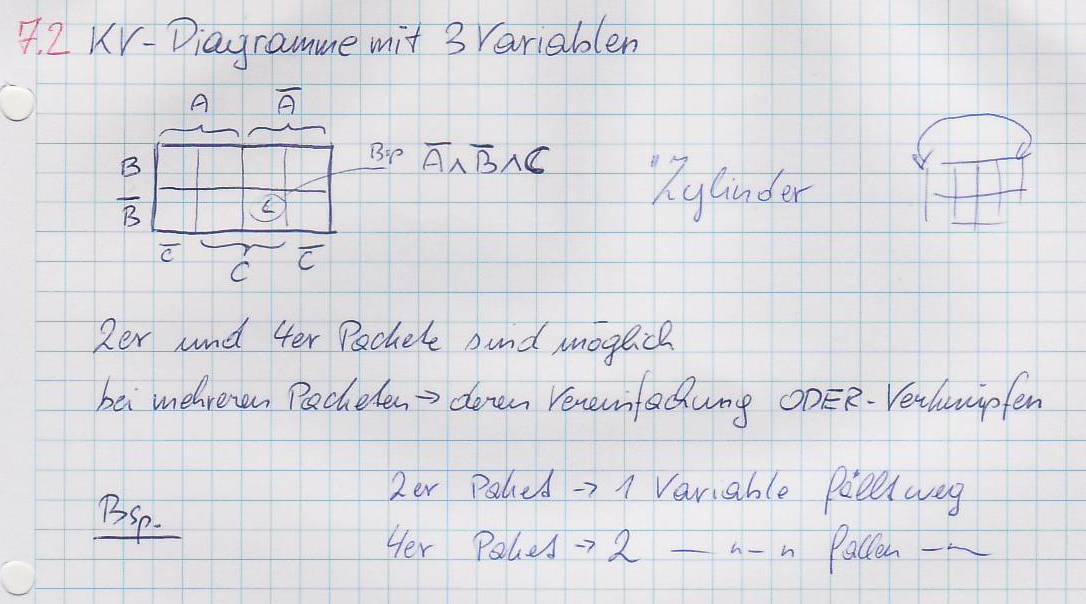 7.2 KV-Diagramme mit 3 Variablen
A A̅
B Bsp A̅∧B̅∧C "Zylinder
B̅
C̅ C C̅
2er und 4er Packete sind möglich
bei mehreren Packeten → deren Vereinfachung ODER-Verknüpfen
2er Paket → 1 Variable fällt weg
Bsp.
4er Paket → 2 — " — " fallen — " —